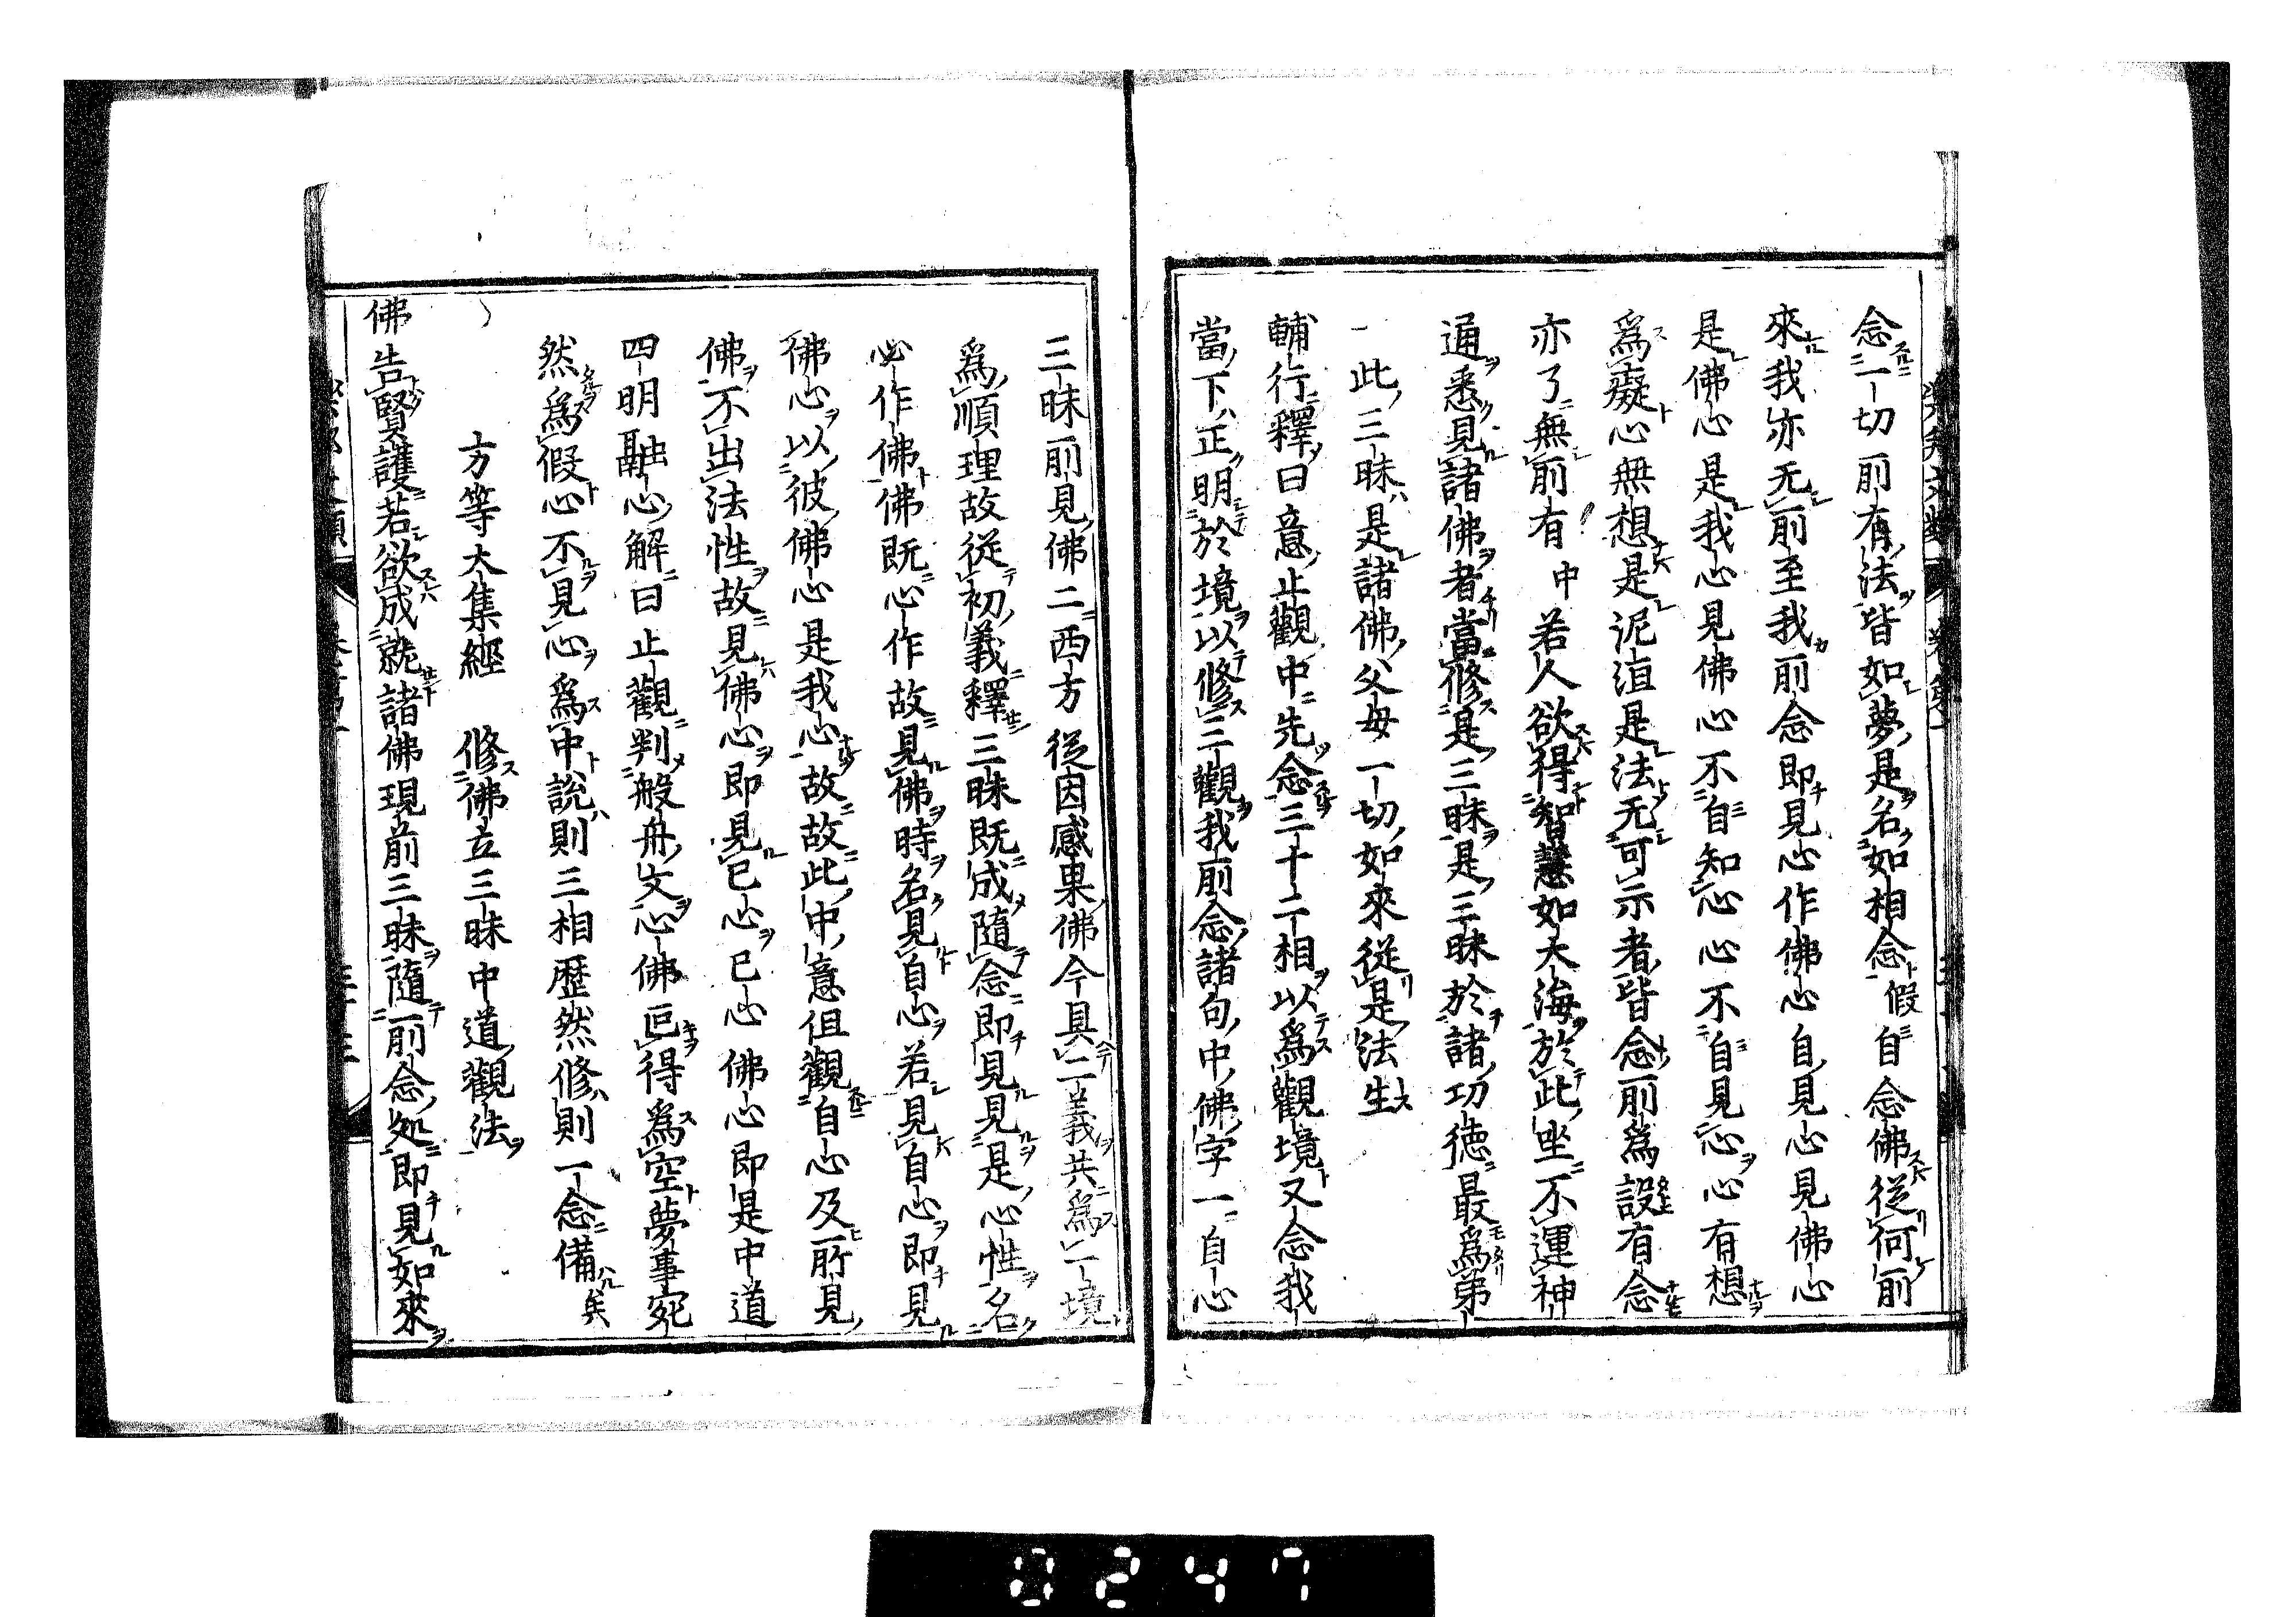 念一切所有法皆如夢是名如相念假自念佛從何所
來我亦无所至我所念即見心作佛心自見心見佛心
是佛心是我心見佛心不自知心心不自見心心有想
爲癡心無想是泥洹是法无可示者皆念所爲設有念
亦了無所有中若人欲得智慧如大海於此坐不運神
通悉見諸佛者當修是三昧是三昧於諸功徳最爲第
一此三昧是諸佛父母一切如來從是法生
輔行釋曰意止觀中先念三十二相以爲觀境又念我
當下正明於境以修三觀我所念諸句中佛字一自心
三昧所見佛二西方從因感果佛今具二義共爲一境
爲順理故從初義釋三昧既成隨念即見見是心性名
心作佛佛既心作故見佛時名見自心若見自心即見
佛心以彼佛心是我心故故此中意但觀自心及所見
佛不出法性故見佛心即見已心已心佛心即是中道
四明融心解曰止觀判般舟文心佛叵得爲空夢事宛
然爲假心不見心爲中說則三相歷然修則一念備矣
方等大集經 修佛立三昧中道觀法
佛告賢護若欲成就諸佛現前三昧隨所念処即見如來
0247